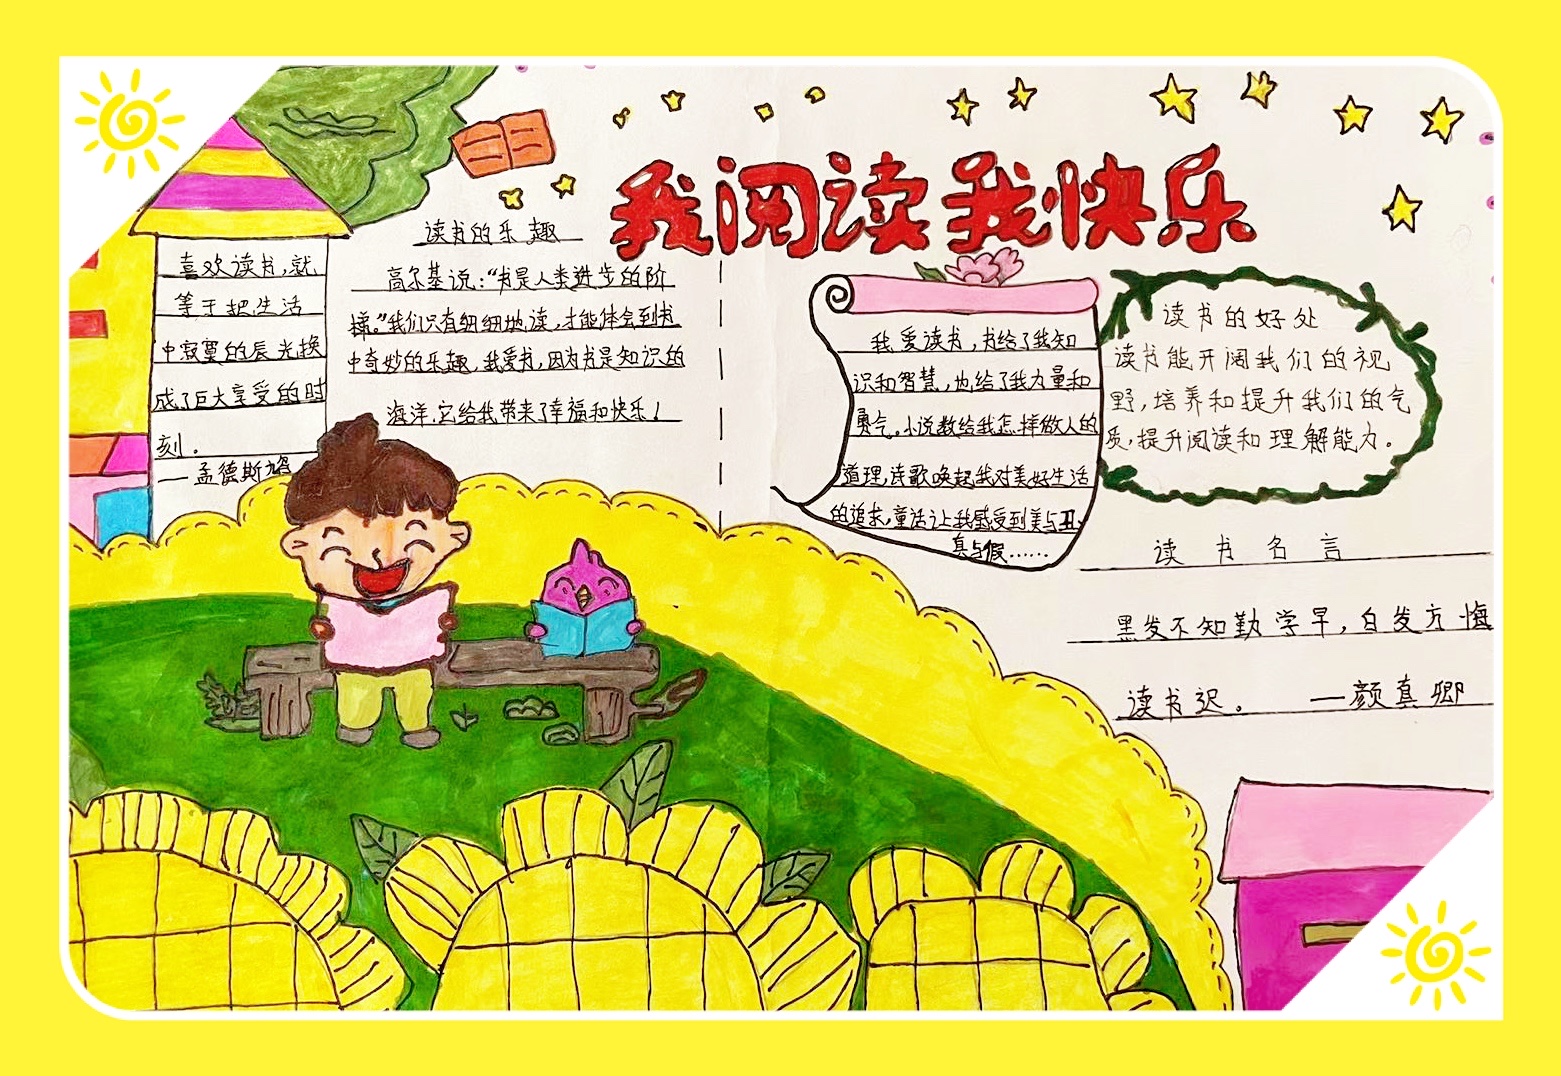 我阅读我快乐
喜欢读书,就
等于把生活
中寂寞的辰光换
成了巨大享受的时
刻.
—孟德斯鸠
读书的乐趣
高尔基说:“书是人类进步的阶
梯。”我们只有细细地读,才能体会到书
中奇妙的乐趣,我爱书,因为书是知识的
海洋,它给我带来了幸福和快乐!
我爱读书,书给了我知
识和智慧,也给了我力量和
勇气。小说教给我怎样做人的
道理,诗歌唤起我对美好生活
的追求,童话让我感受到美与丑、
真与假……
读书的好处
读书能开阔我们的视
野,培养和提升我们的气
质,提升阅读和理解能力。
读书名言
黑发不知勤学早,白发方悔
读书迟。 —颜真卿